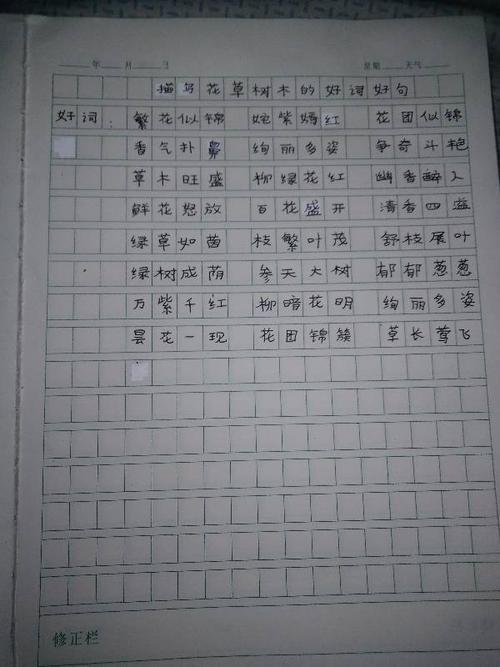 年 月 日 星期 天气
描写花草树木的好词好句
好词： 繁花似锦 姹紫嫣红 花团似锦
香气扑鼻 绚丽多姿 争奇斗艳
草木旺盛 柳绿花红 幽香醉人
鲜花怒放 百花盛开 清香四溢
绿草如茵 枝繁叶茂 舒枝展叶
绿树成荫 参天大树 郁郁葱葱
万紫千红 柳暗花明 绚丽多姿
昙花一现 花团锦簇 草长莺飞
修正栏